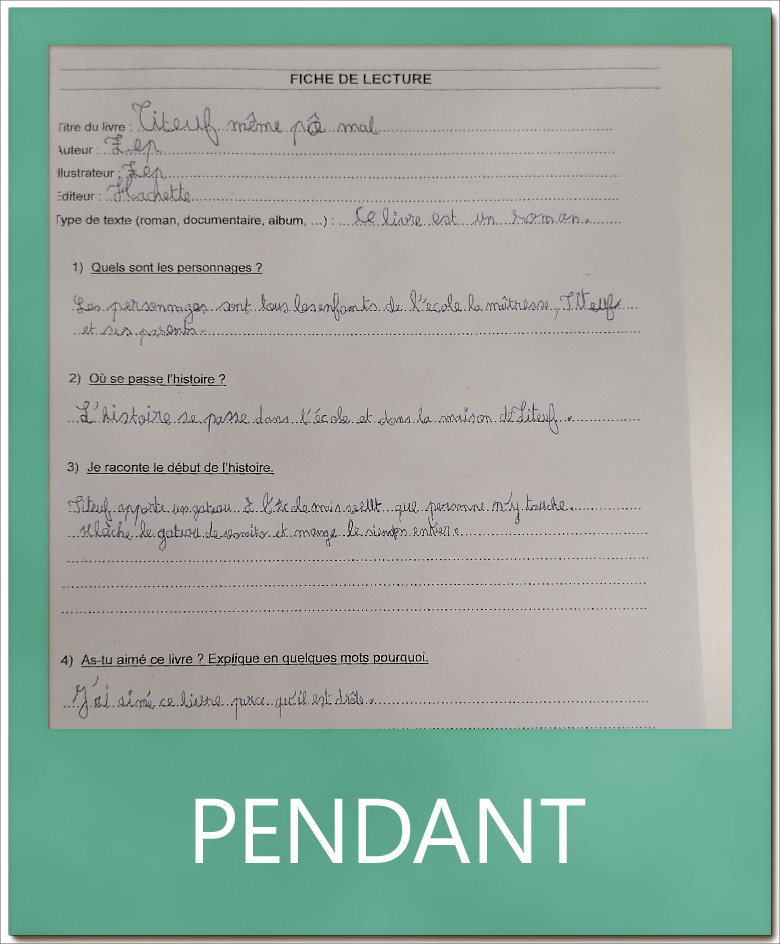 FICHE DE LECTURE
Titre du livre : Titeuf même pô mal
Auteur : Zep
Illustrateur : Zep
Editeur : Hachette
Type de texte (roman, documentaire, album, ...) : Ce livre est un roman.
1) Quels sont les personnages ?
Les personnages sont tous les enfants de l'école la maîtresse, Titeuf
et ses parents.
2) Où se passe l'histoire ?
L'histoire se passe dans l'école et dans la maison de Titeuf.
3) Je raconte le début de l'histoire.
Titeuf apporte un gateau à l'école mais veut que personne n'y touche.
lâche le gateau de et mange le sien en entier.
4) As-tu aimé ce livre ? Explique en quelques mots pourquoi.
J'ai aimé ce livre parce qu'il est drôle.
PENDANT